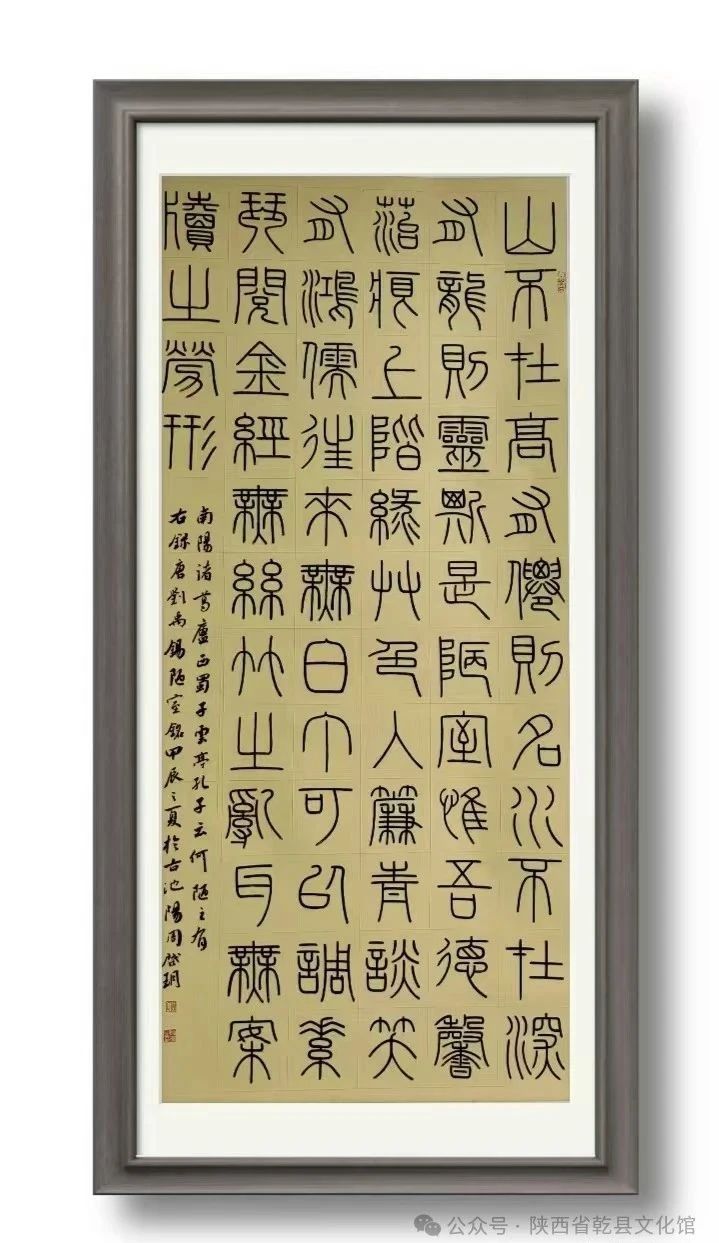 山不在高有僊則名水不在深
有龍則靈斯是陋室惟吾德馨
苔痕上階綠艸色入簾青談笑
有鴻儒往來無白丁可以調素
琴閱金經無絲竹之亂耳無案
牘之勞形
南陽諸葛廬西蜀子雲亭孔子云何陋之有
右錄唐劉禹錫陋室銘甲辰之夏於古池陽周
公众号 · 陕西省乾县文化馆